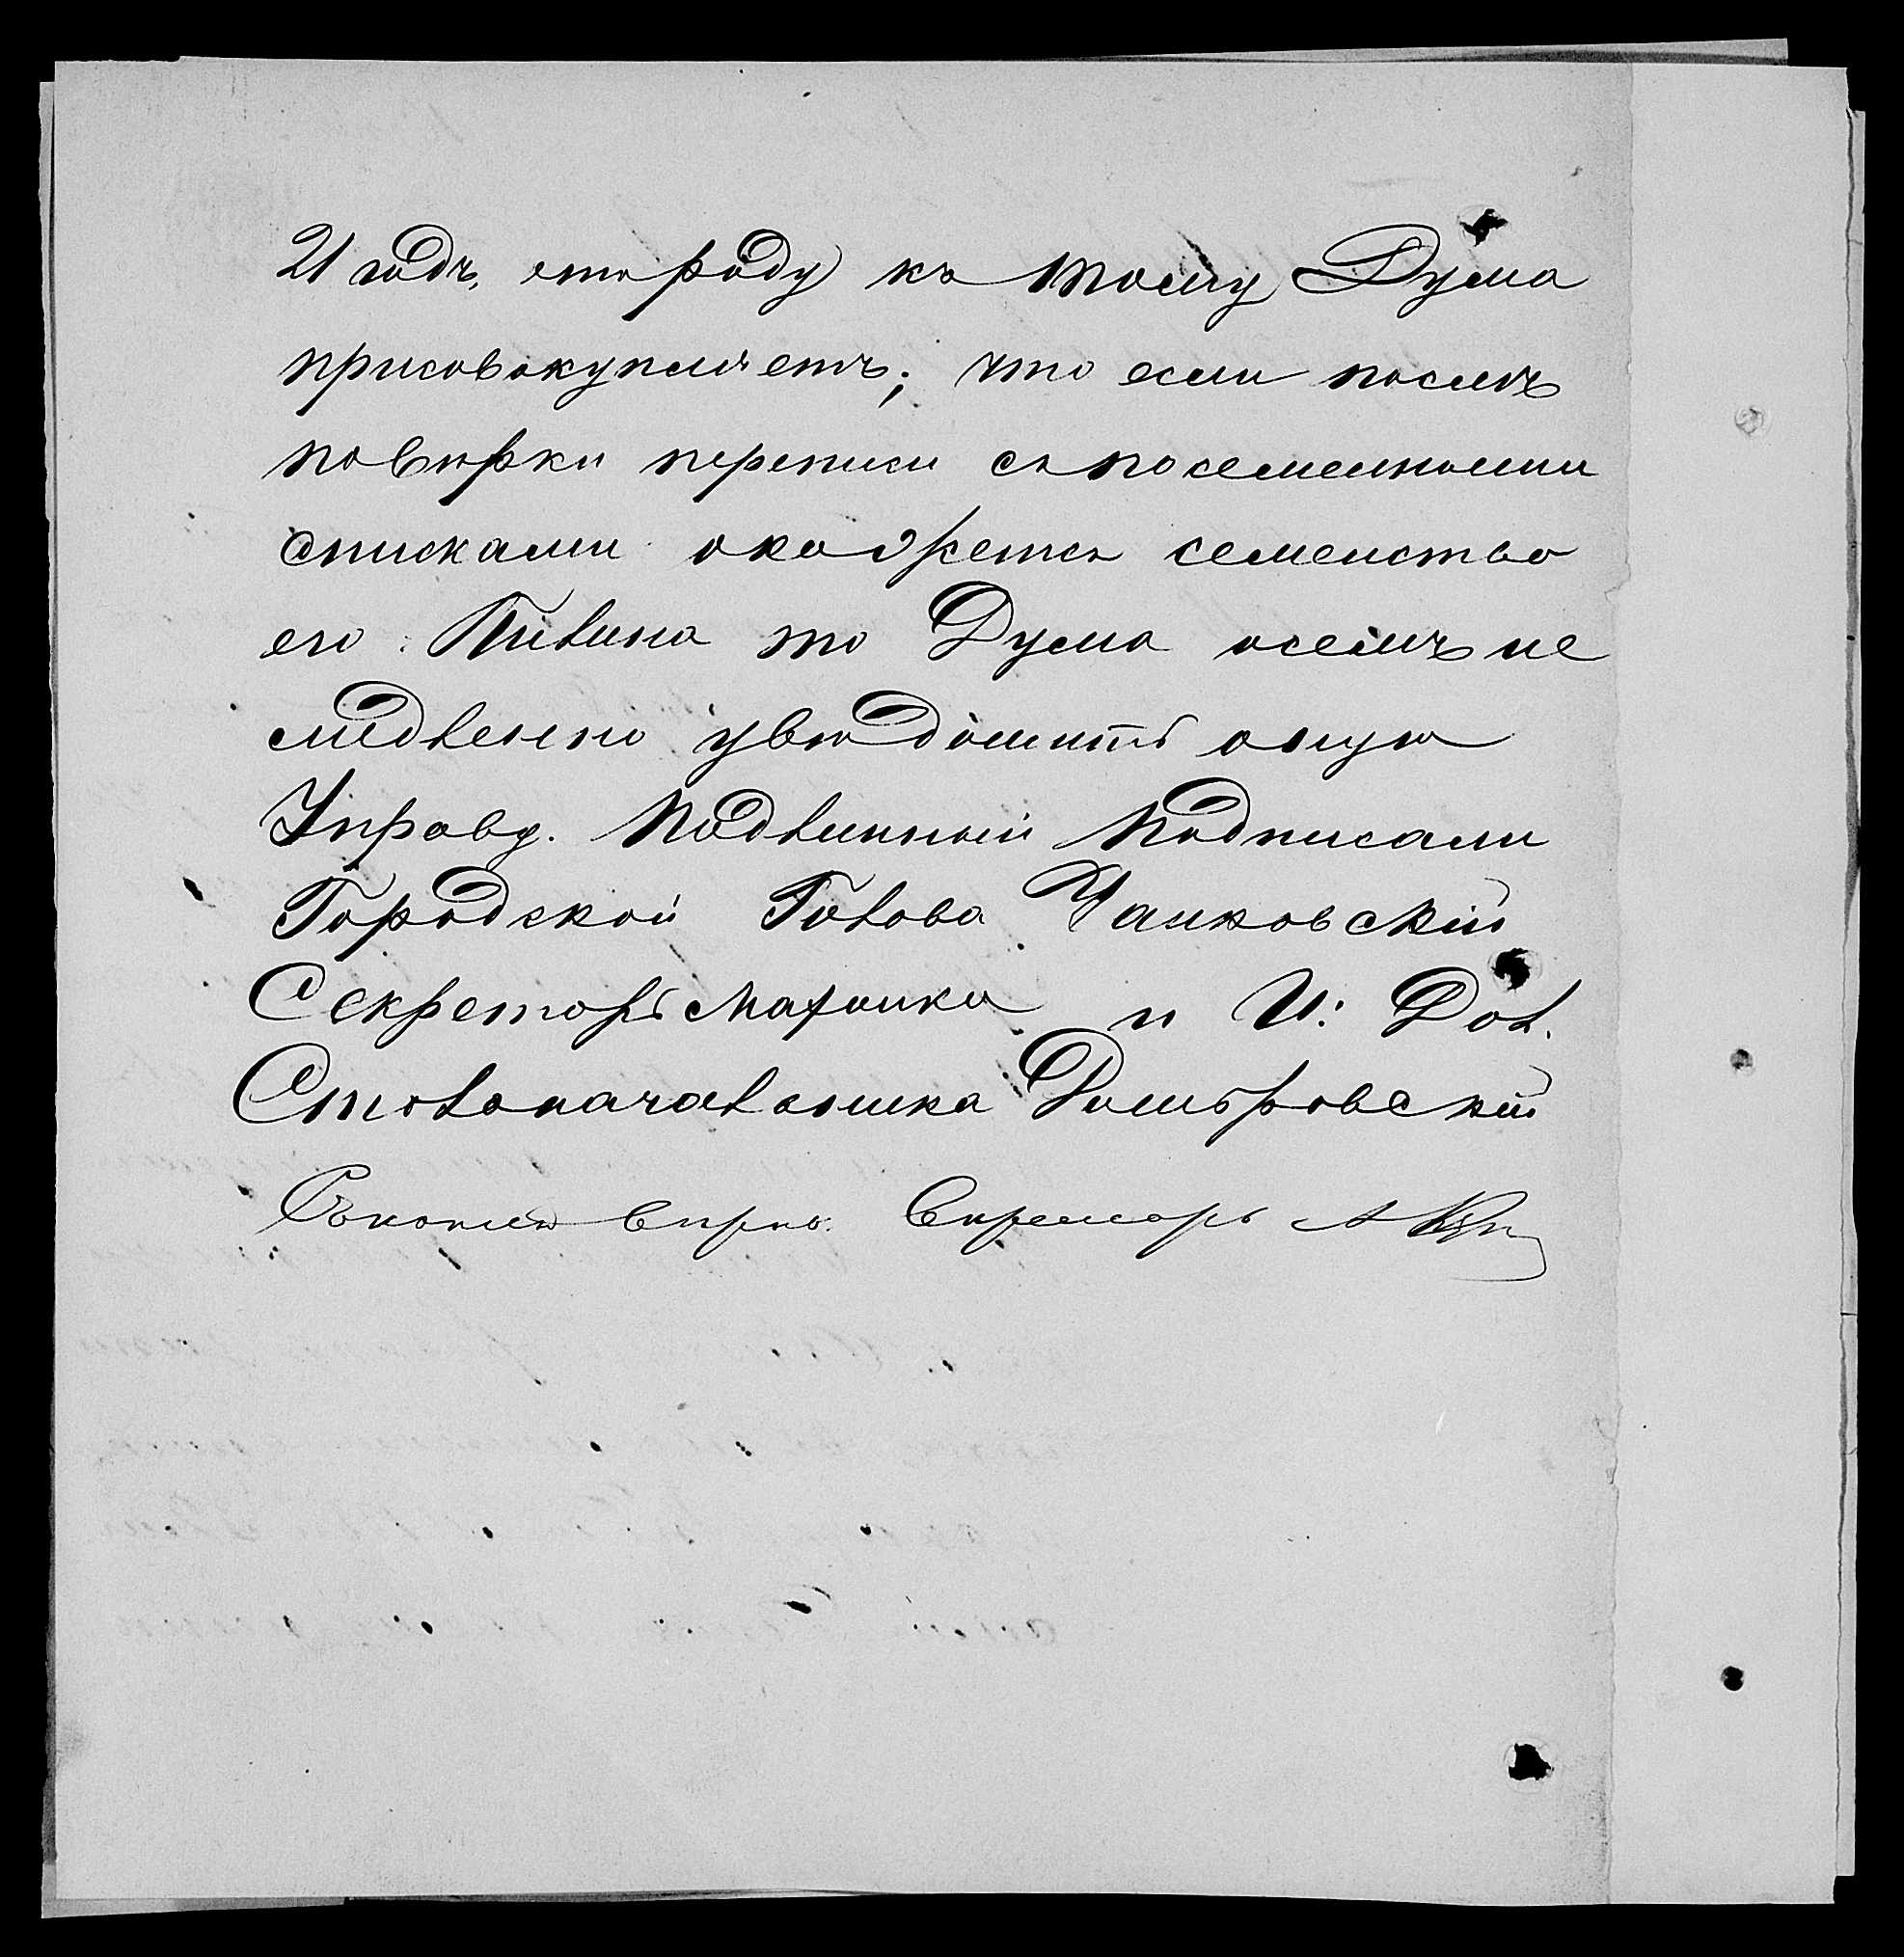 21 годъ, отъ роду къ тому Дума
присовокупляетъ; что если послѣ
повѣрки переписи съ посемейными
списками окажется семейство
его то Дума о семъ не
медленно увѣдомитъ оную
Управу. Подлинный Подписали
Городской Голова Чайковскій
Секретарь и И: Дол.
Столоначальника Домбровскій
Съ копіею вѣрно. Секретарь А